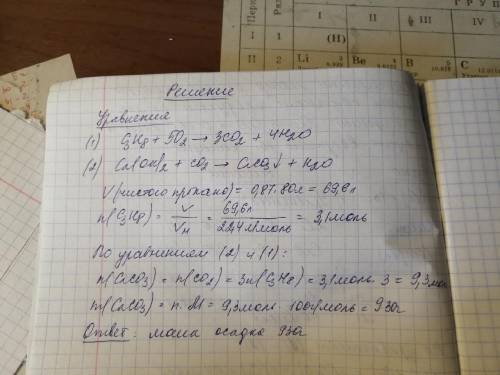 Г Р У П
Период
Ряд
I II III IV
I 1 (H)
II 2 Li 3 6,939 Be 4 B 5 10,811 C 6
Решение
Уравнения
(1) C₃H₈ + 5O₂ → 3CO₂ + 4H₂O
(2) Ca(OH)₂ + CO₂ → CaCO₃↓ + H₂O
V(чистого пропана) = 0,87·80л = 69,6л
n(C₃H₈) = V/Vм = 69,6л/22,4л/моль = 3,1моль
По уравнениям (2) и (1):
n(CaCO₃) = n(CO₂) = 3n(C₃H₈) = 3,1моль·3 = 9,3моль
m(CaCO₃) = n·M = 9,3моль·100г/моль = 930г
Ответ: масса осадка 930г